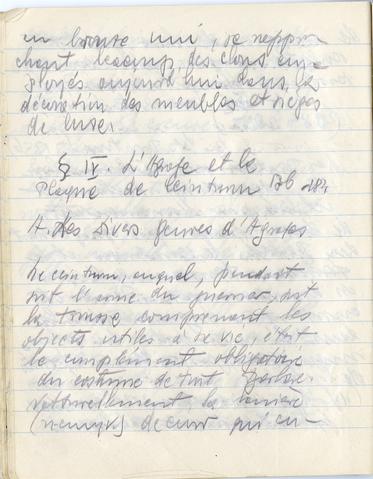 en bronze uni, se rappro
chent beaucoup des clous em
ployés aujourd'hui dans la
décoration des meubles et sièges
de luxe.
§ IV. L'Agrafe et la
Plaque de ceinturon 176 184
A. Les Divers genres d'Agrafes
Le ceinturon, auquel, pendant
soit l'arme du guerrier, soit
la trousse comprenant les
objets utiles à la vie, était
le complément obligatoire
du costume de tout Barbare.
Naturellement la lanière
de cuir qui en-